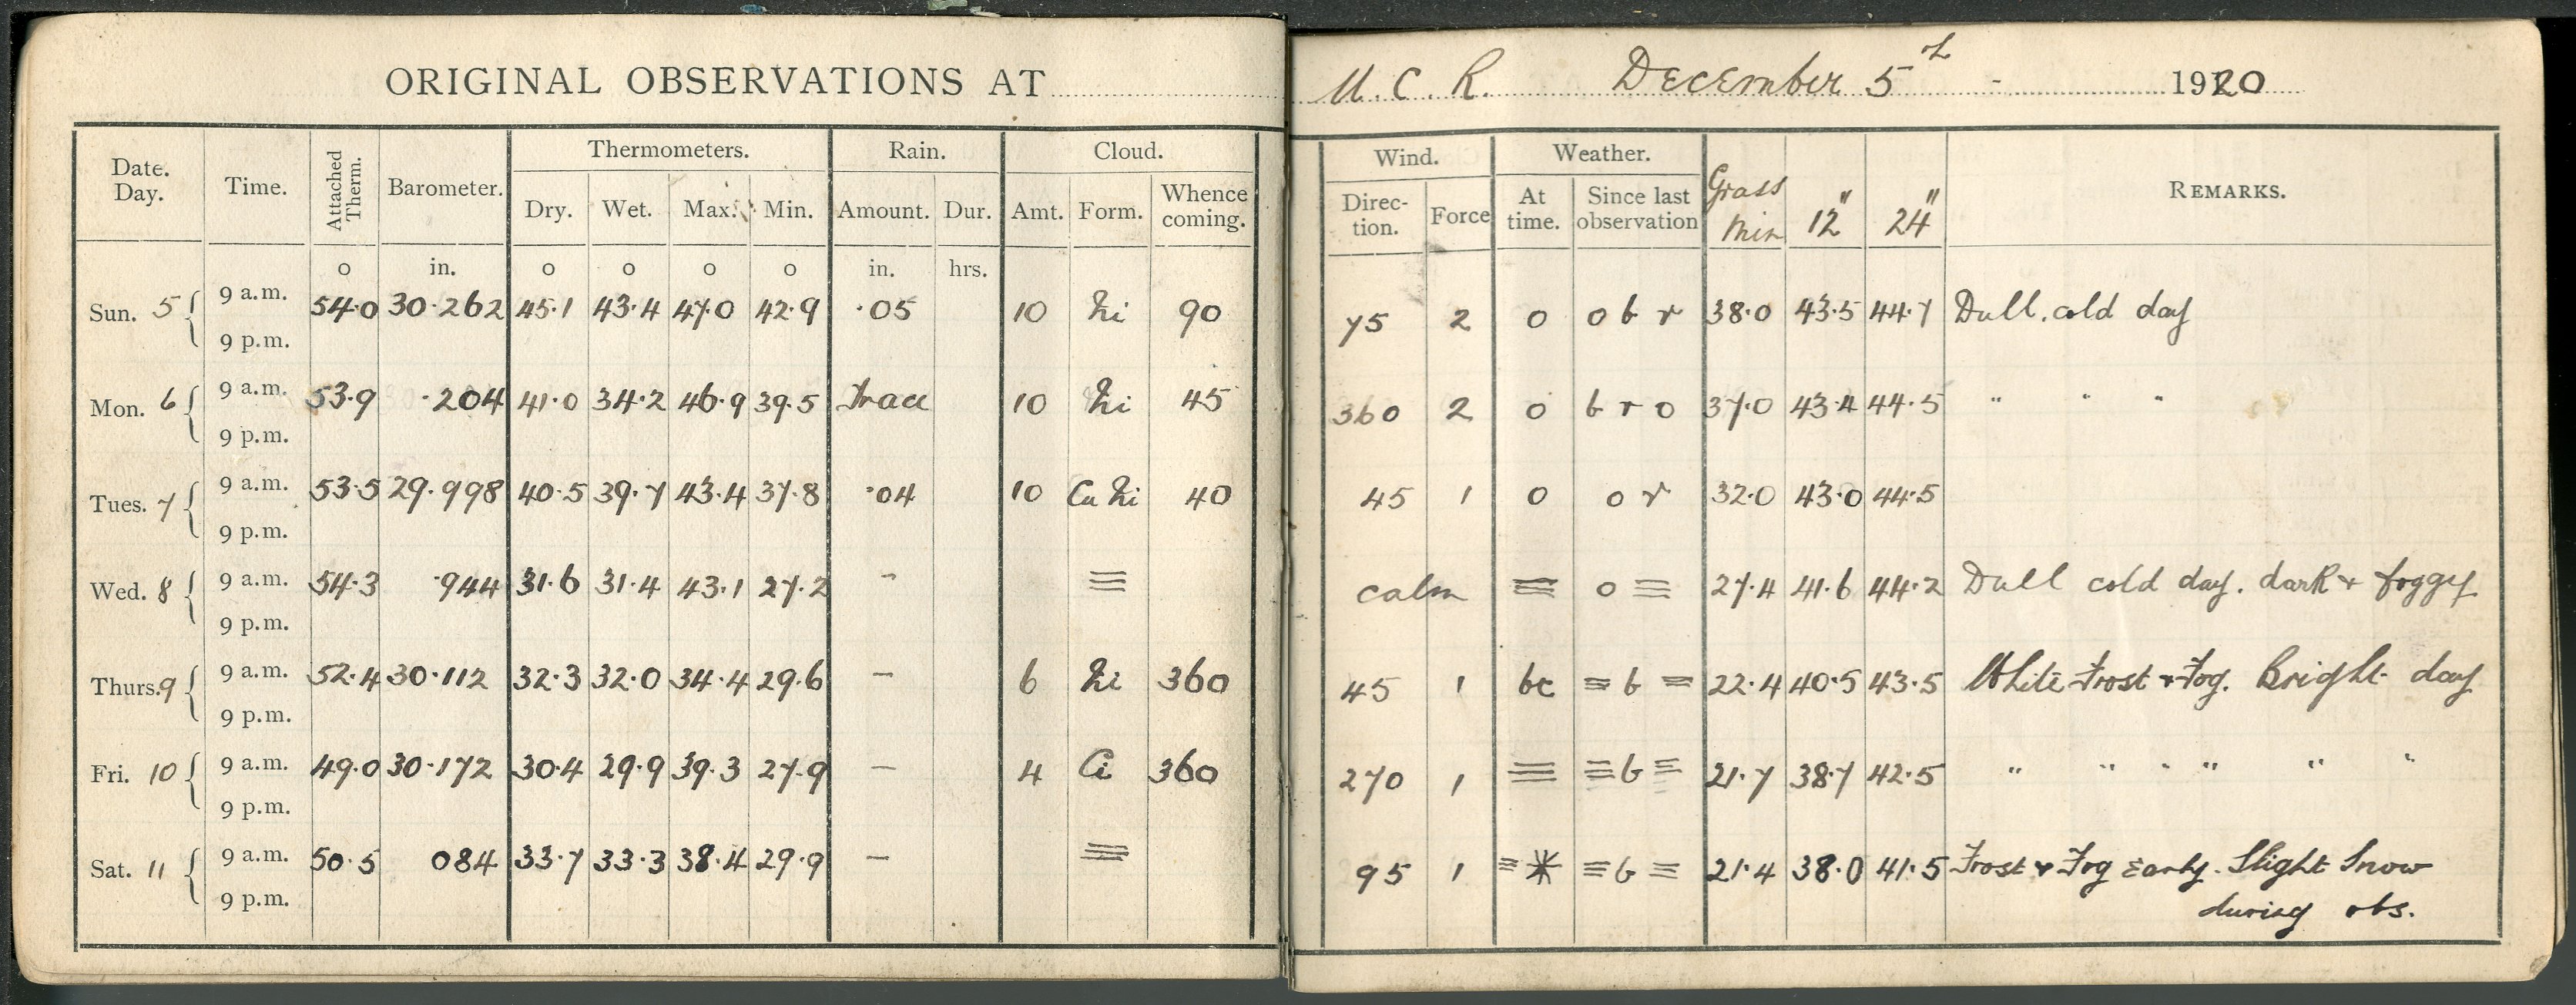 ORIGINAL OBSERVATIONS AT U.C.R. December 5th 1920
Date. Day. Time. Attached Therm. Barometer. Thermometers. Rain. Cloud. Wind. Weather. Grass Min 12" 24" REMARKS.
Dry. Wet. Max. Min. Amount. Dur. Amt. Form. Whence coming. Direc-tion. Force At time. Since last observation
o in. o o o o in. hrs.
Sun. 5 9 a.m. 54.0 30.262 45.1 43.4 47.0 42.9 .05 10 Ni 90 75 2 o o b r 38.0 43.5 44.7 Dull. cold day
9 p.m.
Mon. 6 9 a.m. 53.9 .204 41.0 34.2 46.9 39.5 Trace 10 Ni 45 360 2 o b r o 37.0 43.4 44.5 " " "
9 p.m.
Tues. 7 9 a.m. 53.5 29.998 40.5 39.7 43.4 37.8 .04 10 Cu Ni 40 45 1 o o r 32.0 43.0 44.5
9 p.m.
Wed. 8 9 a.m. 54.3 .944 31.6 31.4 43.1 27.2 - ≡ calm ≡ o ≡ 27.4 41.6 44.2 Dull cold day. dark + foggy
9 p.m.
Thurs. 9 9 a.m. 52.4 30.112 32.3 32.0 34.4 29.6 — 6 Ni 360 45 1 bc ≡ b ≡ 22.4 40.5 43.5 White Frost + Fog. Bright day
9 p.m.
Fri. 10 9 a.m. 49.0 30.172 30.4 29.9 39.3 27.9 — 4 Ci 360 270 1 ≡ ≡ b ≡ 21.7 38.7 42.5 " " " " " "
9 p.m.
Sat. 11 9 a.m. 50.5 084 33.7 33.3 38.4 29.9 — ≡ 95 1 ≡ * ≡ b ≡ 21.4 38.0 41.5 Frost + Fog Early. Slight Snow
9 p.m. during obs.